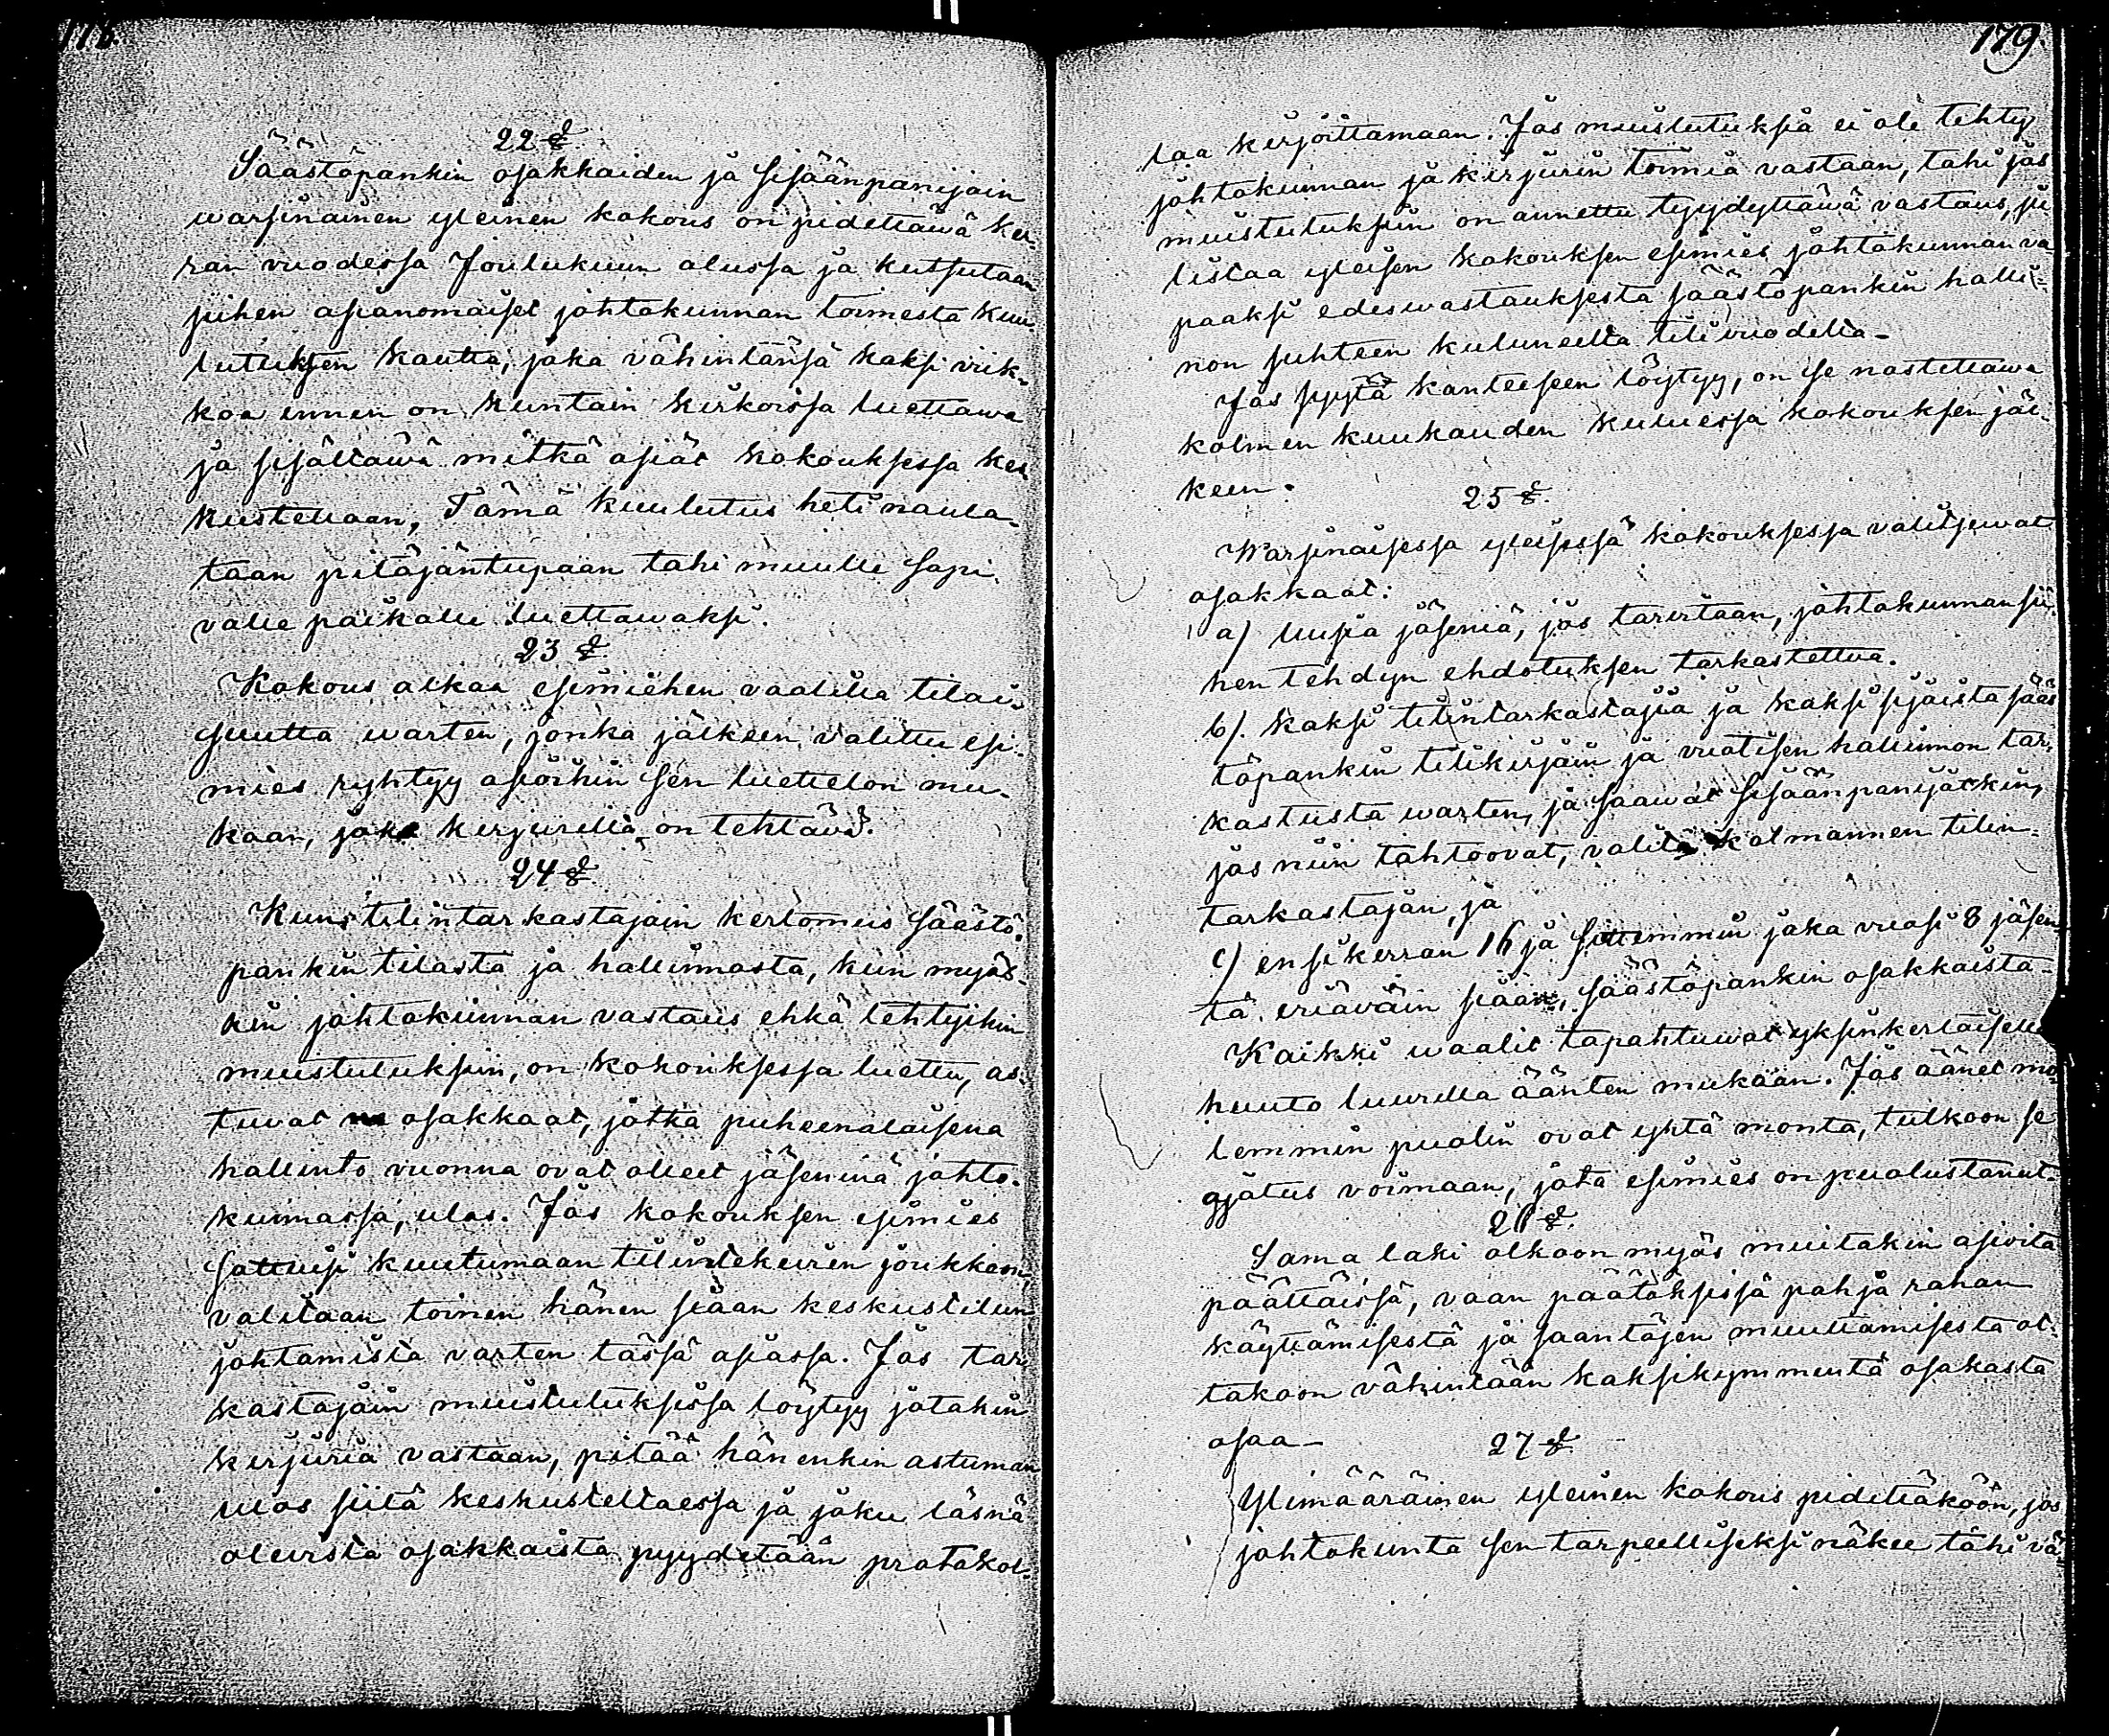 178.
22 §.
Säästöpankin osakkaiden ja sisäänpanijain
warsinainen yleinen kokous on pidettäwä ker-
ran vuodessa Joulukuun alussa ja kutsutaan
siihen asianomaiset johtokunnan toimesta kuu-
lutuksen kautta, joka vähintänsä kaksi viik-
koa ennen on kuntain kirkoissa luettawa
ja sisältäwä mitkä asiat kokouksessa kes-
kustellaan, Tämä kuulutus heti naula-
taan pitäjäntupaan tahi muulle sopi-
valle paikalle luettawaksi.
23 §.
Kokous alkaa esimiehen vaalilla tilai-
suutta warten, jonka jälkeen valittu esi-
mies ryhtyy asioihin sen luettelon mu-
kaan, joka kirjurilla on tehtävä.
24 §.
Kun tilintarkastajain kertomus säästö-
pankin tilasta ja hallinnosta, kuin myös-
kin johtokunnan vastaus ehkä tehtyihin
muistutuksiin, on kokouksessa luettu, as-
tuvat osakkaat, jotka puheenalaisena
hallinto vuonna ovat olleet jäseninä johto-
kunnassa, ulos. Jos kokouksen esimies
sattuisi kuulumaan tilintekeväin joukkoon,
valitaan toinen hänen siaan keskustelun
johtamista varten tässä asiassa. Jos tar-
kastajain muistutuksissa löytyy jotakin
kirjuria vastaan, pitää hänenkin astuman
ulos siitä keskusteltaessa ja joku läsnä
olevista osakkaista pyydetään protokol-
179.
laa kirjoittamaan. Jos muistutuksia ei ole tehty
johtokunnan ja kirjurin toimia vastaan, tahi jos
muistutuksiin on annettu tyydyttäwä vastaus, ju-
listaa yleisen kokouksen esimies johtokunnan va-
paaksi edeswastauksesta säästöpankin halli-
non suhteen kuluneelta tilivuodelta.
Jos syytä kanteeseen löytyy, on se nostettawa
kolmen kuukauden kuluessa kokouksen jäl-
keen.
25 §.
Warsinaisessa yleisessä kokouksessa valitsewat
osakkaat:
a) Uusia jäseniä, jos tarvitaan, johtokunnan sii-
hen tehdyn ehdotuksen tarkastettua.
b). kaksi tilintarkastajaa ja kaksi sijaista sääs
töpankin tilikirjain ja vuotisen hallinnon tar-
kastusta warten, ja saawat sisäänpanijatkin,
jos niin tahtoovat, valita kolmannen tilin-
tarkastajan, ja
c) ensikerran 16 ja sittemmin joka vuosi 8 jäsen-
tä eriäväin siaan, säästöpankin osakkaista-
Kaikki waalit tapahtuwat yksinkertaisella
huuto luvulla äänten mukaan. Jos äänet mo-
lemmin puolin ovat yhtä monta, tulkoon se
ajatus voimaan, jota esimies on puolustanut.
26 §.
Sama laki olkoon myös muitakin asioita
päättäissä, vaan päätöksissä pohja rahan
käyttämisestä ja saantöjen muuttamisesta ot-
takoon vähintään kaksikymmentä osakasta
osaa-
27 §.
Ylimääräinen yleinen kokous pidettäköön, jos
johtokunta sen tarpeelliseksi näkee tahi vä-